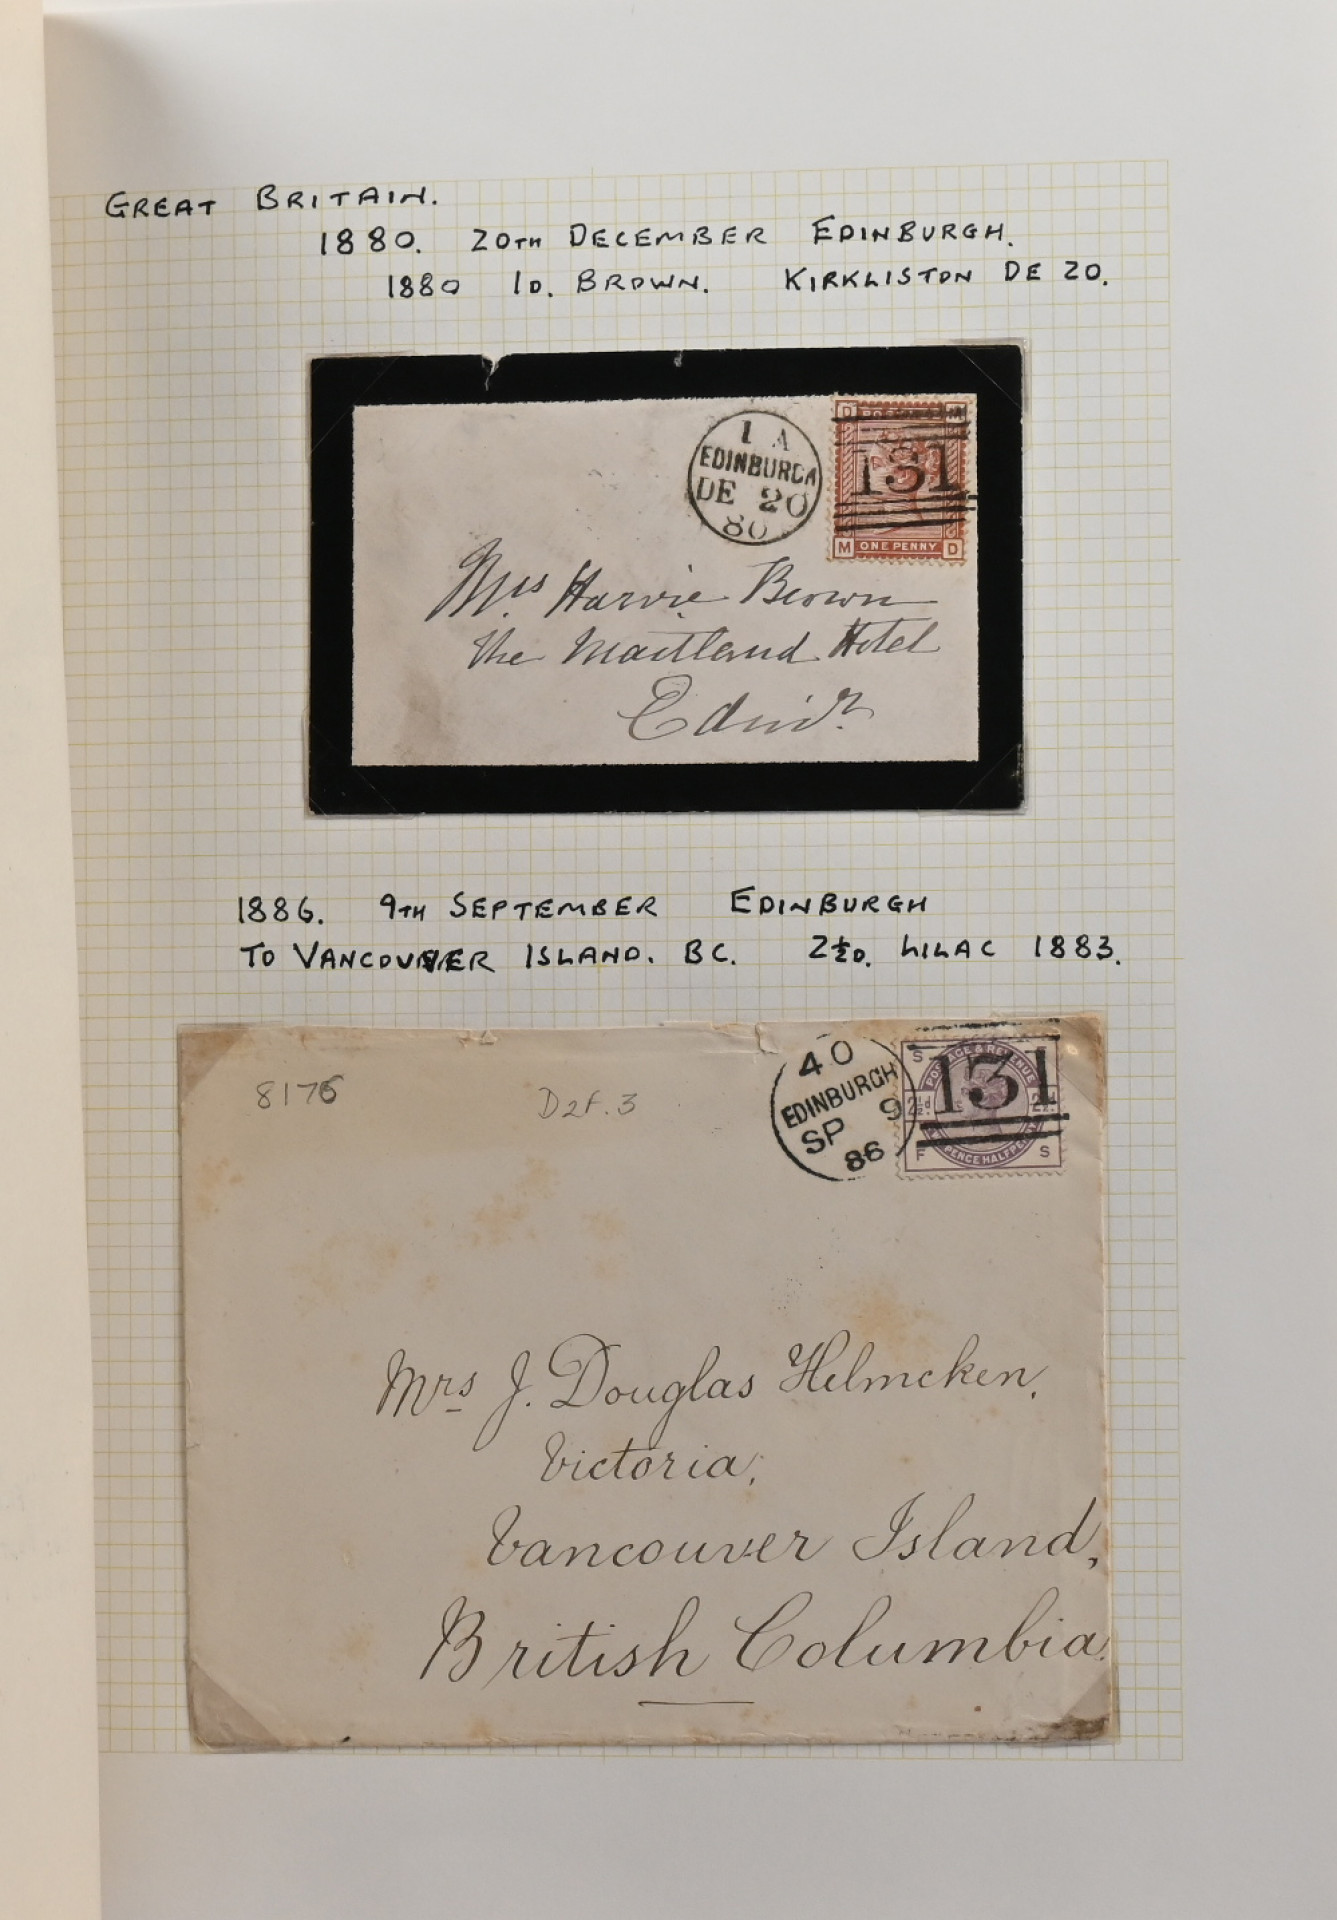 GREAT BRITAIN.
1880. 20TH DECEMBER EDINBURGH.
1880 1D. BROWN. KIRKLISTON DE 20.
1 A
EDINBURGH
DE 20
80
D POSTAGE M
131
M ONE PENNY D
Mrs Harvie Brown
The Maitland Hotel
Edinr
1886. 9TH SEPTEMBER EDINBURGH
TO VANCOUVER ISLAND. BC. 2½D. LILAC 1883.
8176
D2F.3
40
EDINBURGH
SP 9
86
S F
POSTAGE & REVENUE
131
2½d. 2½
PENCE HALFPENNY
F S
Mrs J. Douglas Helmcken,
Victoria,
Vancouver Island,
British Columbia.